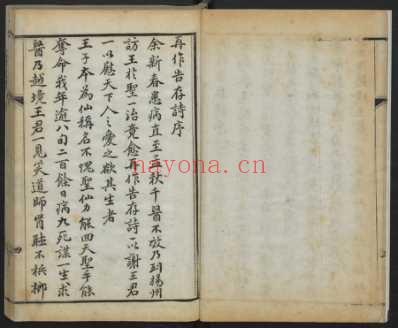 再作告存詩序
余新春患病直至三秋千醫不效乃到揚州
訪王於聖一治竟愈再作告存詩以謝王君
一以慰天下人之愛之欲其生者
王子本為仙稱名不愧聖仙力能回天聖手能
奪命我年逾八旬二百餘日病九死謀一生求
醫乃越境王君一見笑道師胃不柳
nayona.cn